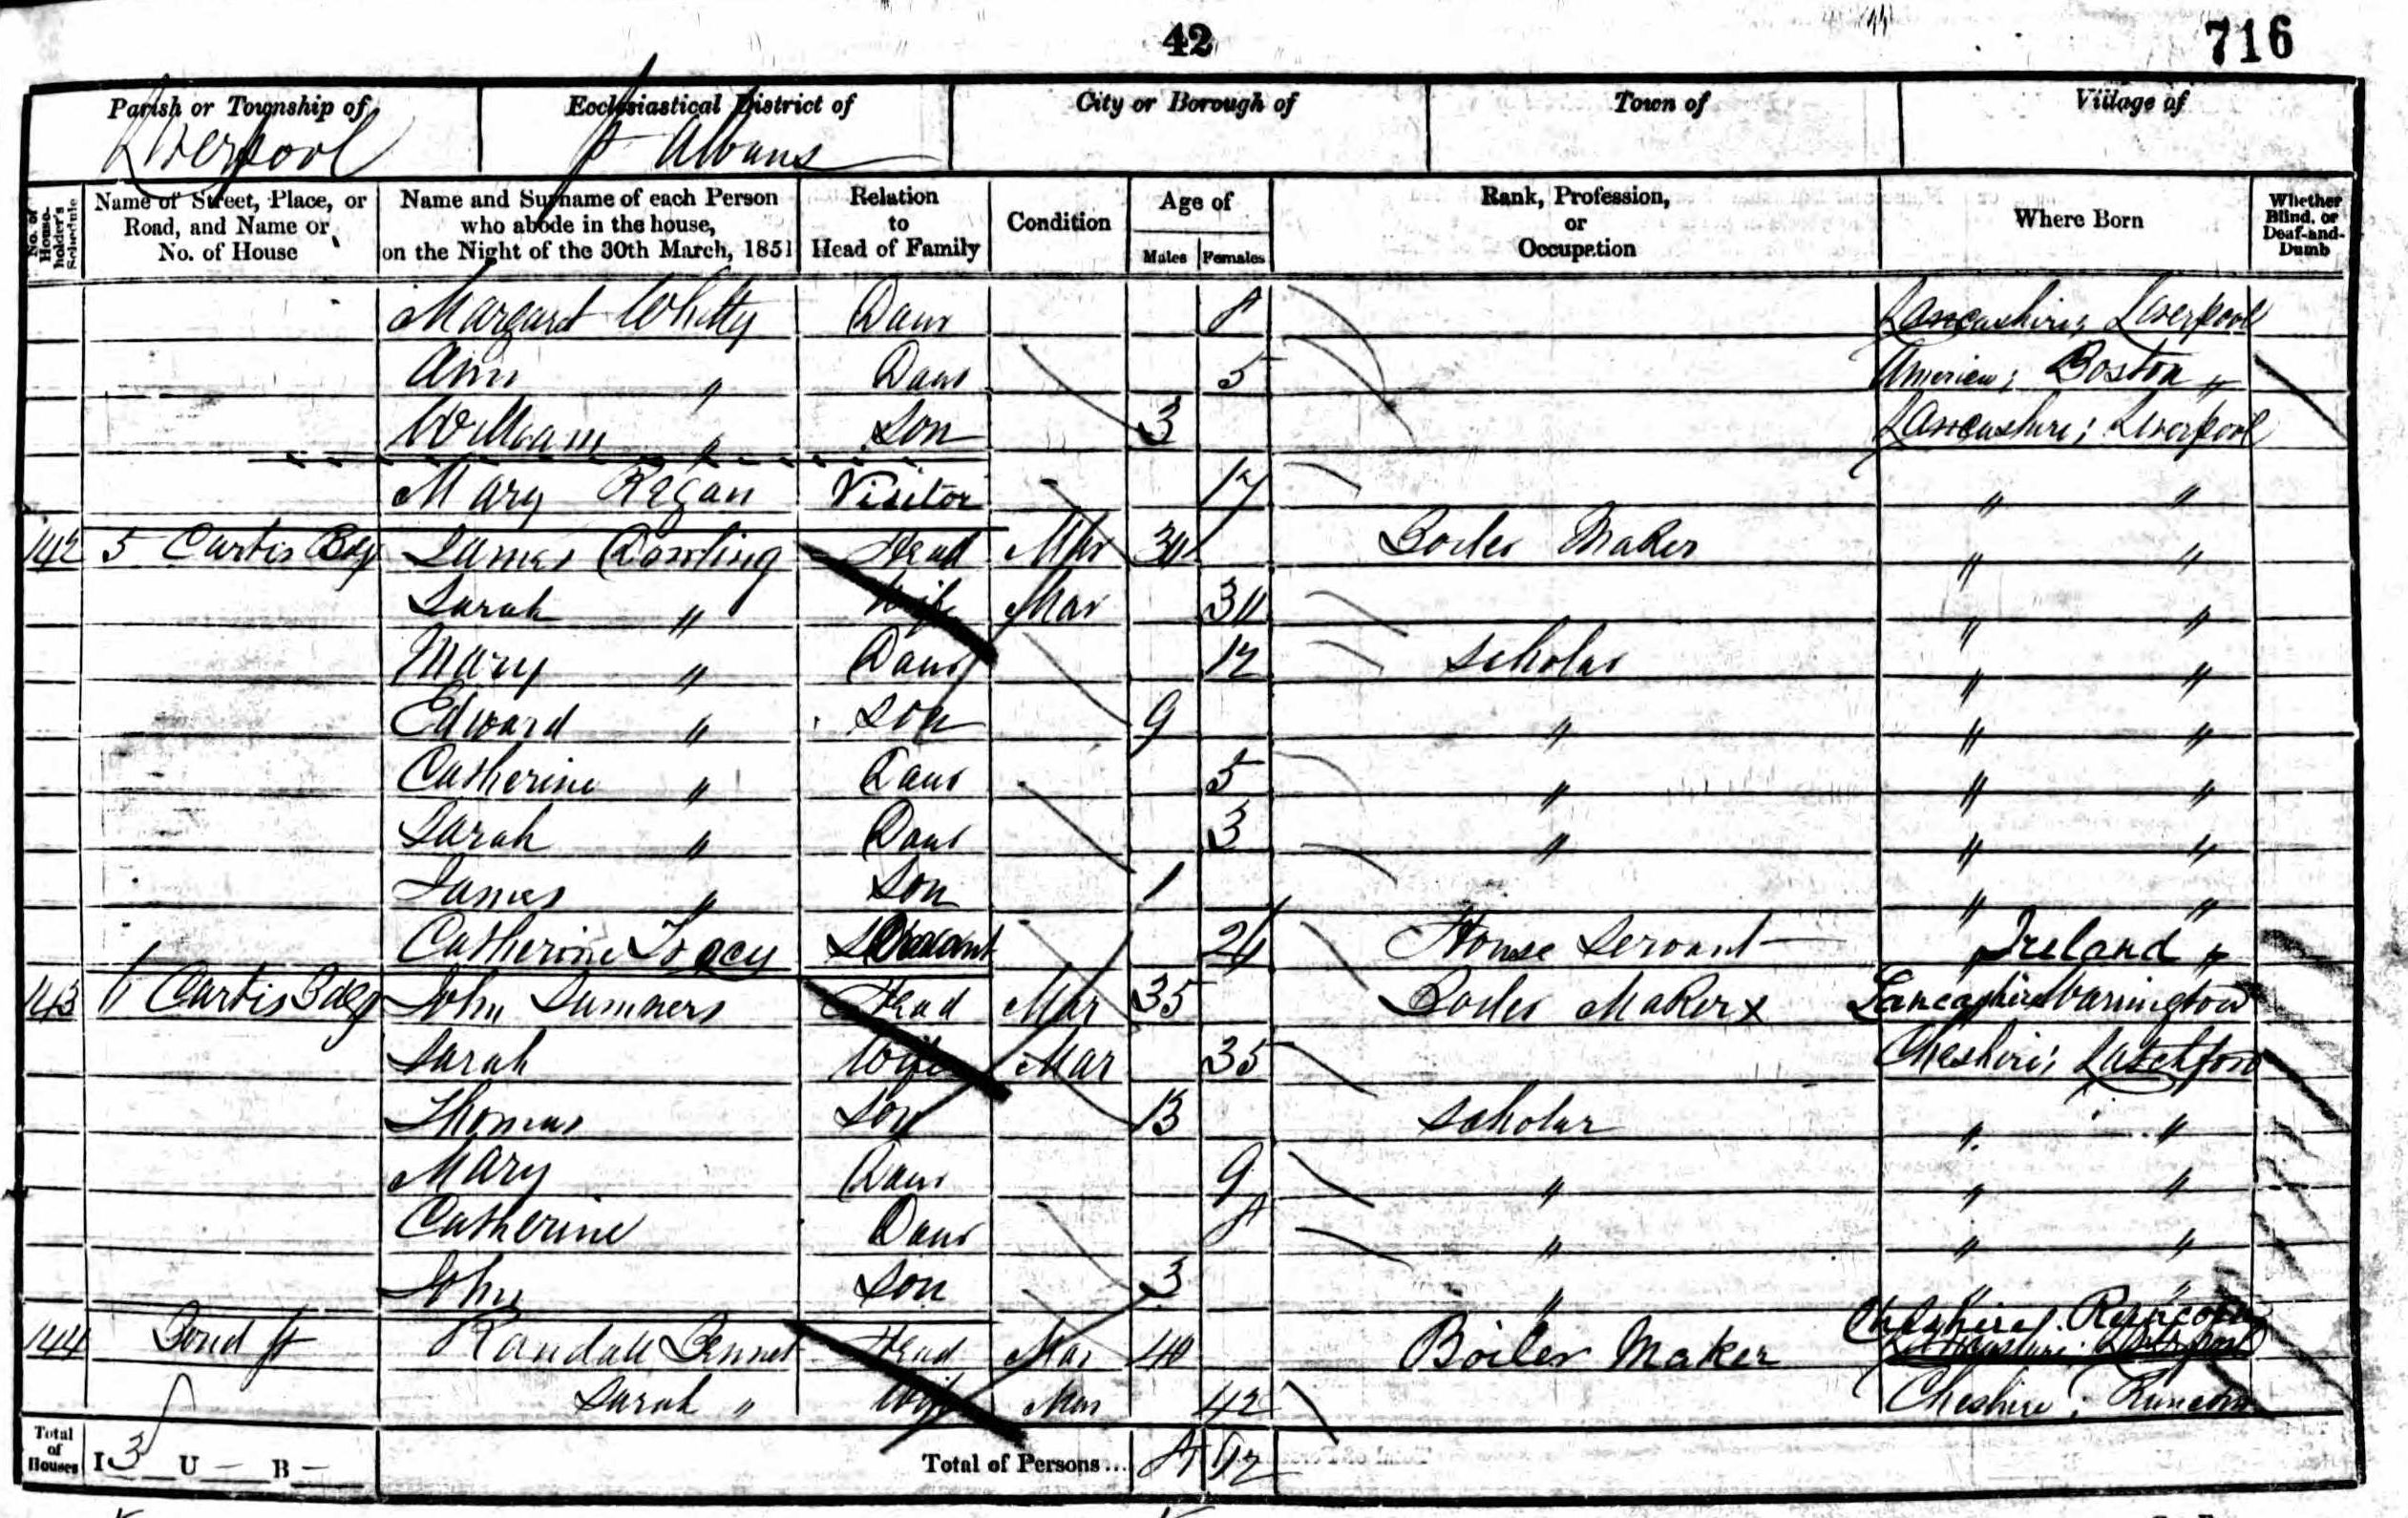 42
716
Parish or Township of Ecclesiastical District of City or Borough of Town of Village of
Liverpool St Albans
No. of House-holder's Schedule
Name of Street, Place, or Road, and Name or No. of House
Name and Surname of each Person who abode in the house, on the Night of the 30th March, 1851
Relation to Head of Family
Condition
Age of
Males Females
Rank, Profession, or Occupation
Where Born
Whether Blind, or Deaf-and-Dumb
Margaret Whitty Daur 8 Lancashire; Liverpool
Ann " Daur 5 America; Boston "
William " Son 3 Lancashire; Liverpool
Mary Regan Visitor 17 " "
142 5 Curtis Bdg James Head Mar Boiler Maker " "
Sarah " Wife Mar " "
Mary " Daur 12 Scholar " "
Edward " Son 9 " " "
Catherine " Daur 5 " " "
Sarah " Daur 3 " " "
James " Son 1 " "
Catherine Tracy Servant House Servant Ireland "
143 6 Curtis Bdg John Summers Head Mar 35 Boiler Maker x Lancashire Warrington
Sarah Wife Mar 35 Cheshire; Latchford
Thomas Son 13 Scholar " "
Mary Daur 9 " " "
Catherine Daur 8 " " "
John Son 3 " " "
144 Bond St Randall Bennet Head Mar 40 Boiler Maker Cheshire Runcorn
Sarah " Wife Mar 42 Cheshire; Runcorn
Total of Houses I 3 U — B — Total of Persons... 8 12